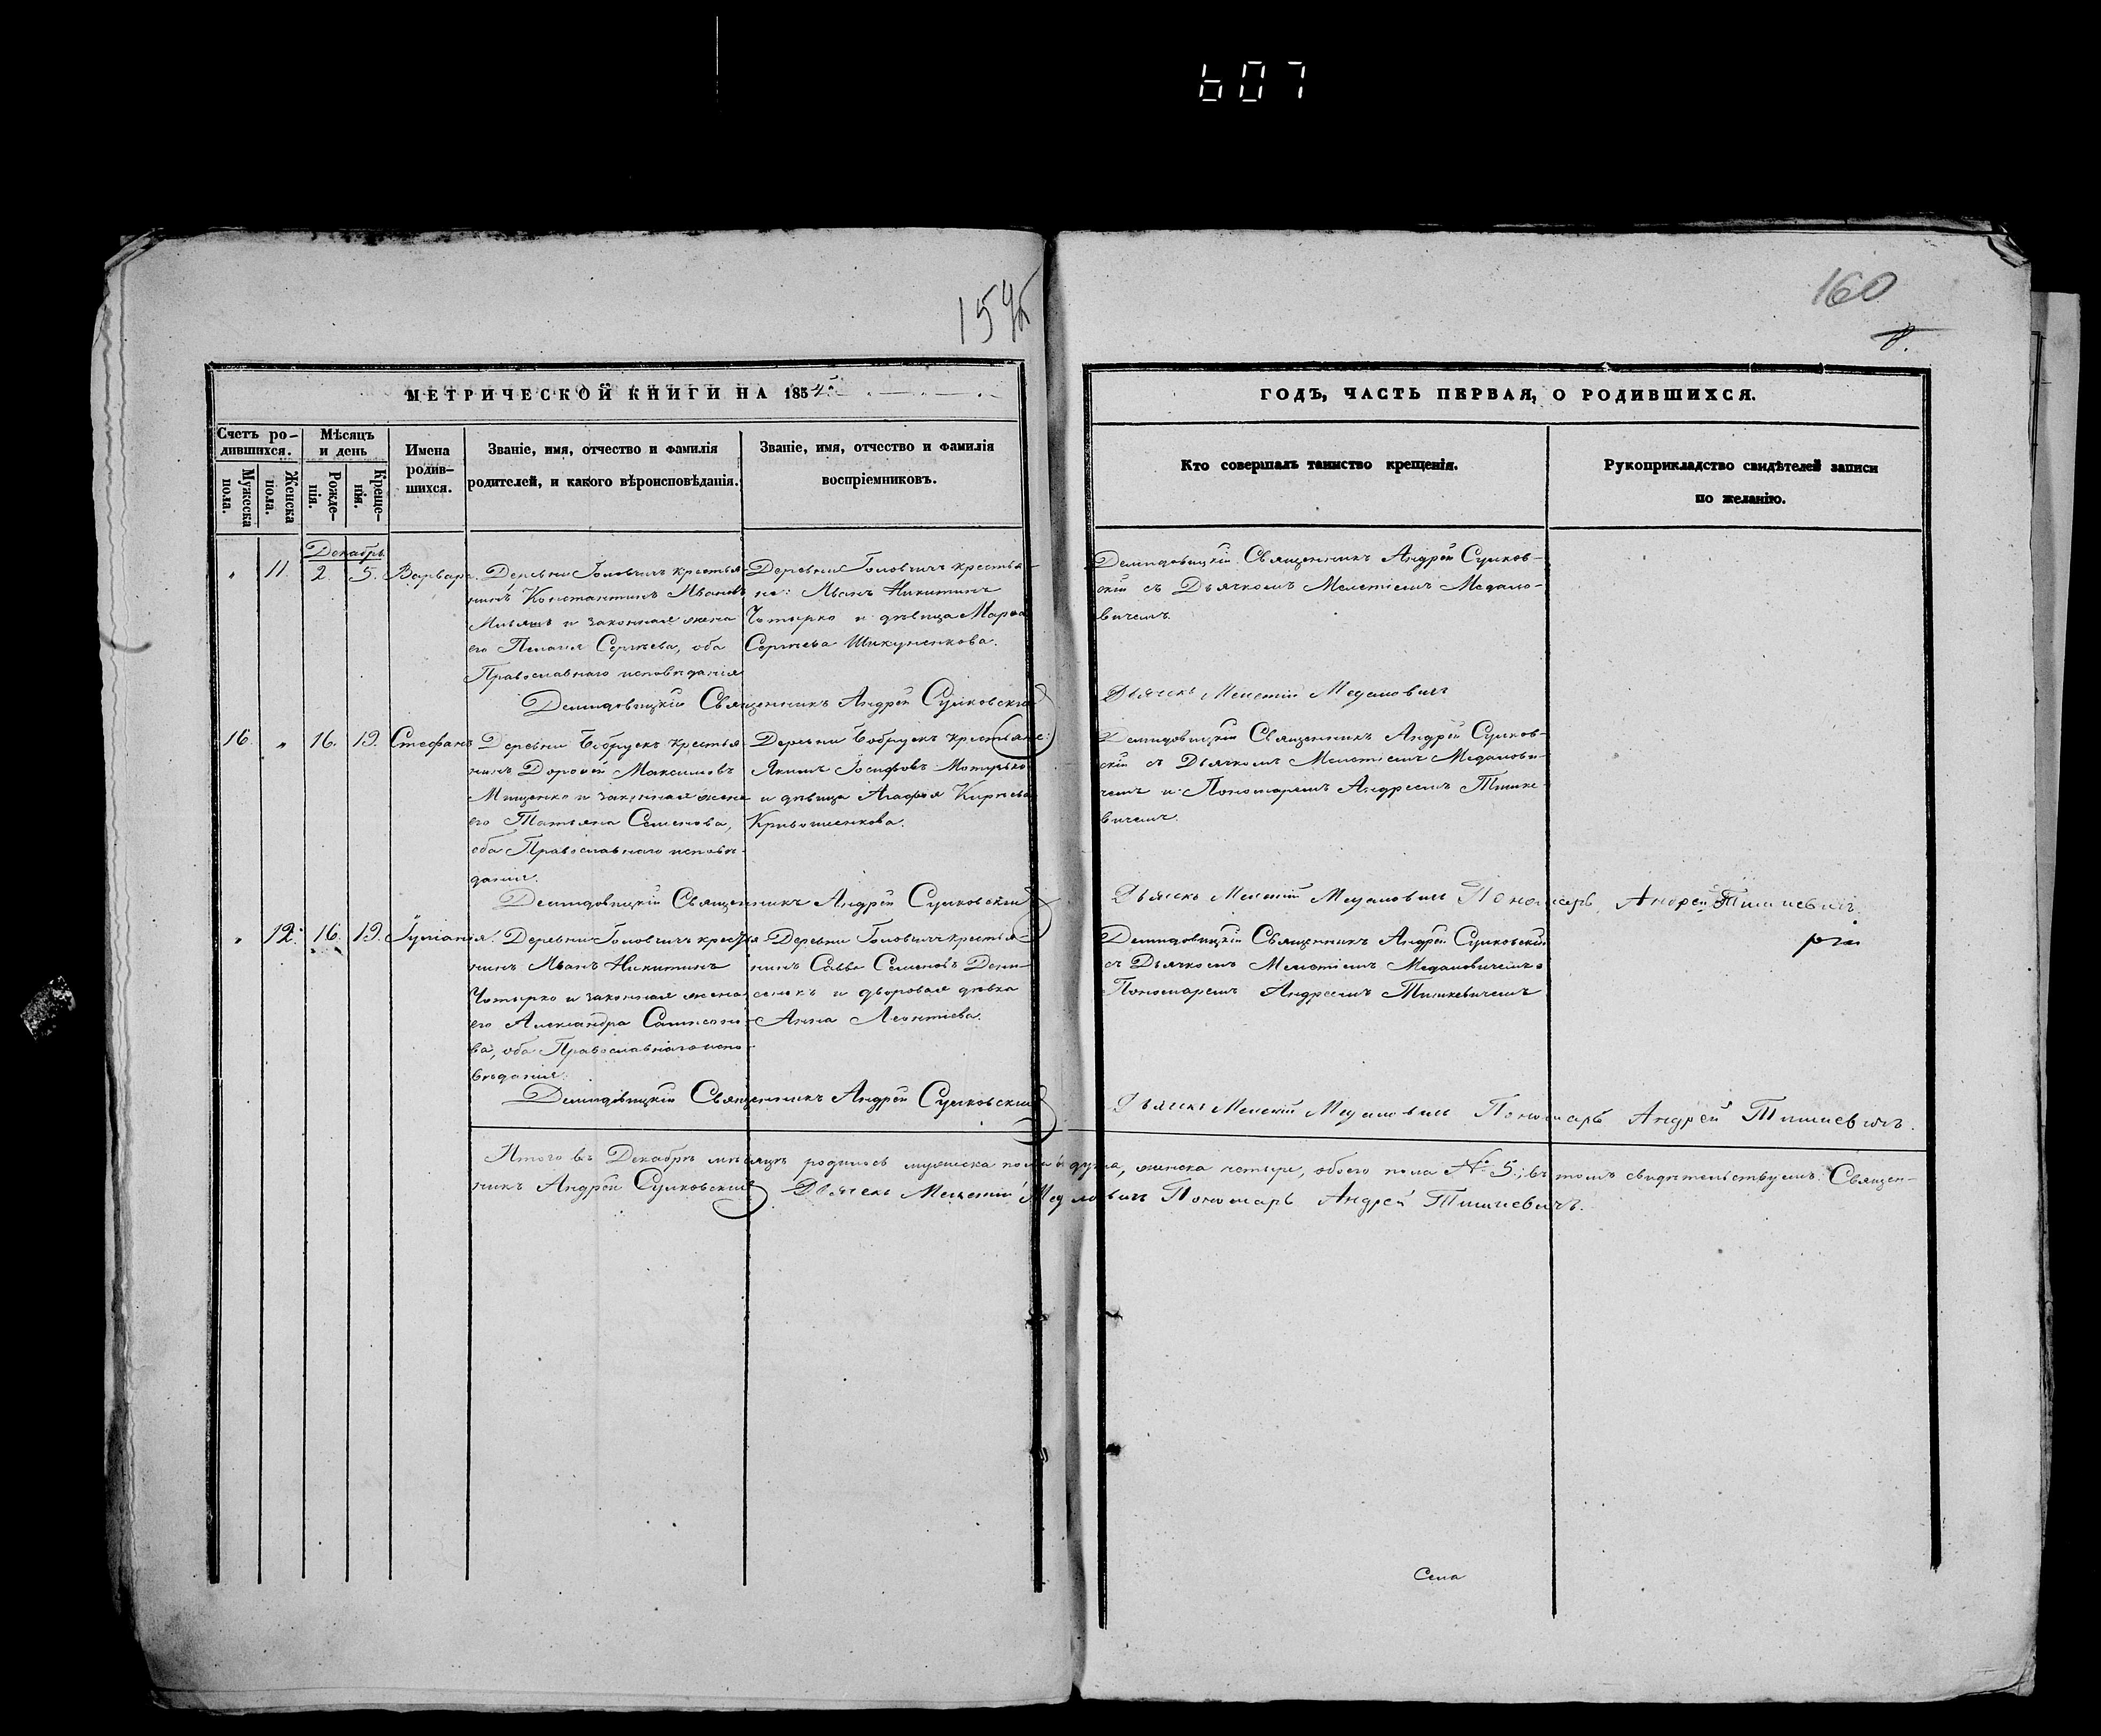 607
160
МЕТРИЧЕСКОЙ КНИГИ НА 1854
ГОДЪ, ЧАСТЬ ПЕРВАЯ, О РОДИВШИХСЯ.
Счетъ ро-
дившихся.
Мужеска
пола.
Женска
пола.
Мѣсяцъ
и день
Рожде-
нія.
Креще-
нія.
Имена
родив-
шихся.
Званіе, имя, отчество и фамилія
родителей, и какого вѣроисповѣданія.
Званіе, имя, отчество и фамилія
воспріемниковъ.
Кто совершалъ таинство крещенія.
Рукоприкладство свидѣтелей записи
по желанію.
Декабрь.
11. 2. 5. Варвара.
Деревни Головчицъ крестья-
нинъ Константинъ Ивановъ
и законная жена
его Пелагія Сергѣева, оба
Православнаго исповѣданія
Деревни Головчицъ крестья-
не: Иванъ Никитинъ
Чотырко и дѣвица Марѳа
Сергѣева Шикуненкова.
Демидовицкій Священникъ Андрей Сулков-
скій съ Дьячкомъ Мелетіемъ Медало-
вичемъ.
Демидовицкій Священникъ Андрей Сулковскій
Дьячекъ Мелетій Медаловичъ
16. " 16. 19. Стефанъ
Деревни Бобрускъ крестья-
нинъ Дороѳей Максимовъ
Мищенко и законная жена
его Татьяна Семенова,
оба Православнаго исповѣ-
данія.
Деревни Бобрускъ крестьяне:
Якимъ Іосифовъ Мотузко
и дѣвица Агафія Кирѣева
Кривошенкова.
Демидовицкій Священникъ Андрей Сулков-
скій съ Дьячкомъ Мелетіемъ Медалови-
чемъ и Пономаремъ Андреемъ Тишке-
вичемъ.
Демидовицкій Священникъ Андрей Сулковскій
Дьячекъ Мелетій Медаловичъ Пономарь Андрей Тишкевичъ.
" 12. 16. 19. Гуліанія.
Деревни Головчицъ крестья-
нинъ Иванъ Никитинъ
Чотырко и законная жена
его Александра Самсоно-
ва, оба Православнаго испо-
вѣданія.
Деревни Головчицъ крестья-
нинъ Савва Семеновъ Дени-
сенокъ и дворовая дѣвка
Анна Леонтіева.
Демидовицкій Священникъ Андрей Сулковскій
съ Дьячкомъ Мелетіемъ Медаловичемъ и
Пономаремъ Андреемъ Тишкевичемъ
Демидовицкій Священникъ Андрей Сулковскій
Дьячекъ Мелетій Медаловичъ Пономарь Андрей Тишкевичъ.
Итого въ Декабрѣ мѣсяцѣ родилось мужеска пола душа, женска четыре, обоего пола № 5; въ томъ свидѣтельствуемъ: Священ-
никъ Андрей Сулковскій Дьячекъ Мелетій Медаловичъ Пономарь Андрей Тишкевичъ.
Села